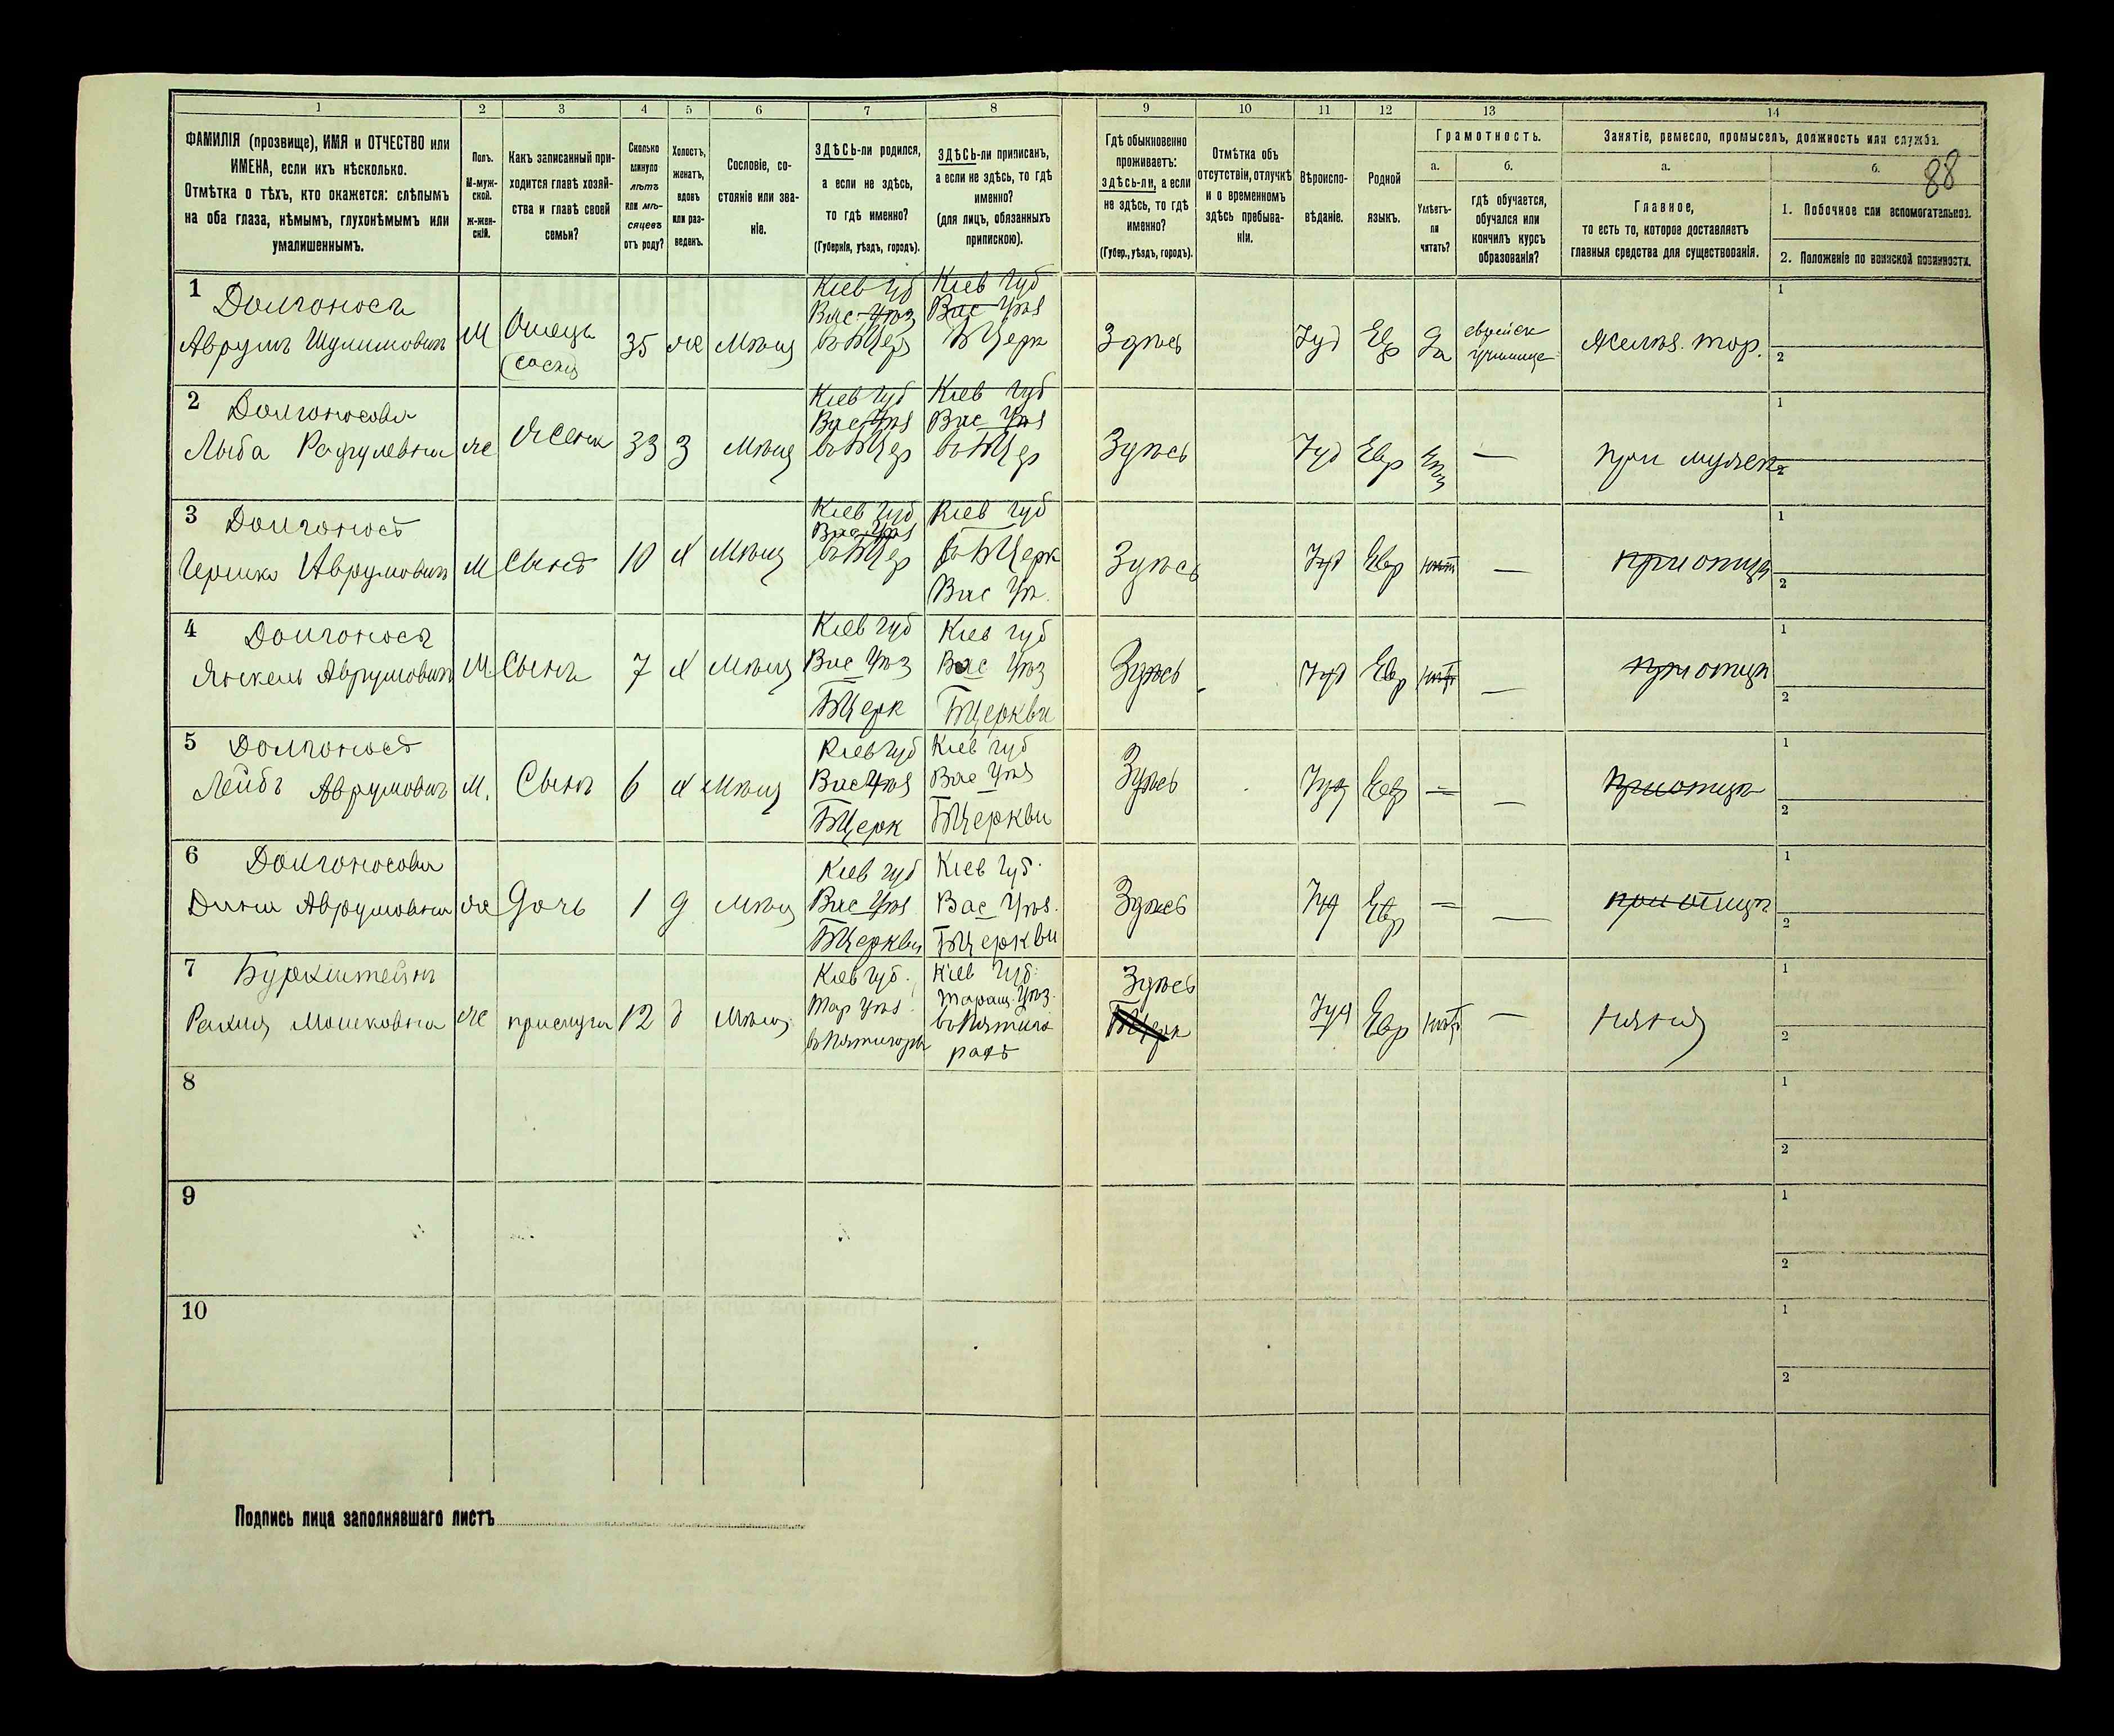 1 2 3 4 5 6 7 8 9 10 11 12 13 14
ФАМИЛІЯ (прозвище), ИМЯ и ОТЧЕСТВО или
ИМЕНА, если ихъ нѣсколько.
Отмѣтка о тѣхъ, кто окажется: слѣпымъ
на оба глаза, нѣмымъ, глухонѣмымъ или
умалишеннымъ.
Полъ.
М-муж-
ской.
Ж-жен-
скій.
Какъ записанный при-
ходится главѣ хозяй-
ства и главѣ своей
семьи?
Сколько
минуло
лѣтъ
или мѣ-
сяцевъ
отъ роду?
Холостъ,
женатъ,
вдовъ
или раз-
веденъ.
Сословіе, со-
стояніе или зва-
ніе.
ЗДѢСЬ-ли родился,
а если не здѣсь,
то гдѣ именно?
(Губернія, уѣздъ, городъ).
ЗДѢСЬ-ли приписанъ,
а если не здѣсь, то гдѣ
именно?
(для лицъ, обязанныхъ
припискою).
Гдѣ обыкновенно
проживаетъ:
здѣсь-ли, а если
не здѣсь, то гдѣ
именно?
(Губер., уѣздъ, городъ).
Отмѣтка объ
отсутствіи, отлучкѣ
и о временномъ
здѣсь пребыва-
ніи.
Вѣроиспо-
вѣданіе.
Родной
языкъ.
Грамотность.
а.
Умѣетъ-
ли
читать?
б.
гдѣ обучается,
обучался или
кончилъ курсъ
образованія?
Занятіе, ремесло, промыселъ, должность или служба.
88
а.
Главное,
то есть то, которое доставляетъ
главныя средства для существованія.
б.
1. Побочное или вспомогательное.
2. Положеніе по воинской повинности.
1 Долгоносъ
Аврумъ Шулимовичъ
М
Отецъ
35 же Мѣщ
Кіев Губ
Вас Уѣз
въ БЦер
Кіев Губ
Вас Уѣз
БЦерк
Здѣсь Іуд Евр Да
еврейск
училище
Желѣз. тор.
1
2
2 Долгоносова
Лыба
же Жена 33 З Мѣщ
Кіев Губ
Вас Уѣз
въ БЦер
Кіев Губ
Вас Уѣз
въ БЦер
Здѣсь Іуд Евр — при мужѣ
1
2
3 Долгоносъ
Гершко Аврумовичъ
М Сынъ 10 х Мѣщ
Кіев Губ
Вас Уѣз
въ БЦер
Кіев Губ
въ БЦерк
Вас Уѣ.
Здѣсь Іуд Евр нѣт — при отцѣ
1
2
4 Долгоносъ
Янкель Аврумовичъ
М Сынъ 7 х Мѣщ
Кіев Губ
Вас Уѣз
БЦерк
Кіев Губ
Вас Уѣз
БЦеркви
Здѣсь Іуд Евр нѣт — при отцѣ
1
2
5 Долгоносъ
Лейбъ Аврумовичъ
М. Сынъ 6 х Мѣщ
Кіев Губ
Вас Уѣз
БЦерк
Кіев Губ
Вас Уѣз
БЦеркви
Здѣсь Іуд Евр — — при отцѣ
1
2
6 Долгоносова
Дина Аврумовна
же Дочь 1 д Мѣщ
Кіев Губ
Вас Уѣз
БЦеркви
Кіев Губ.
Вас Уѣз.
БЦеркви
Здѣсь Іуд Евр — — при отцѣ
1
2
7 Бурхштейнъ
Рахиля Мошковна
же прислуга 12 д Мѣщ
Кіев Губ.
Тар Уѣз
въ Пятигоры
Кіев Губ.
Таращ. Уѣз.
въ Пятиго
рахъ
Здѣсь
Іуд Евр нѣт — няня
1
2
8
1
2
9
1
2
10
1
2
Подпись лица заполнявшаго листъ